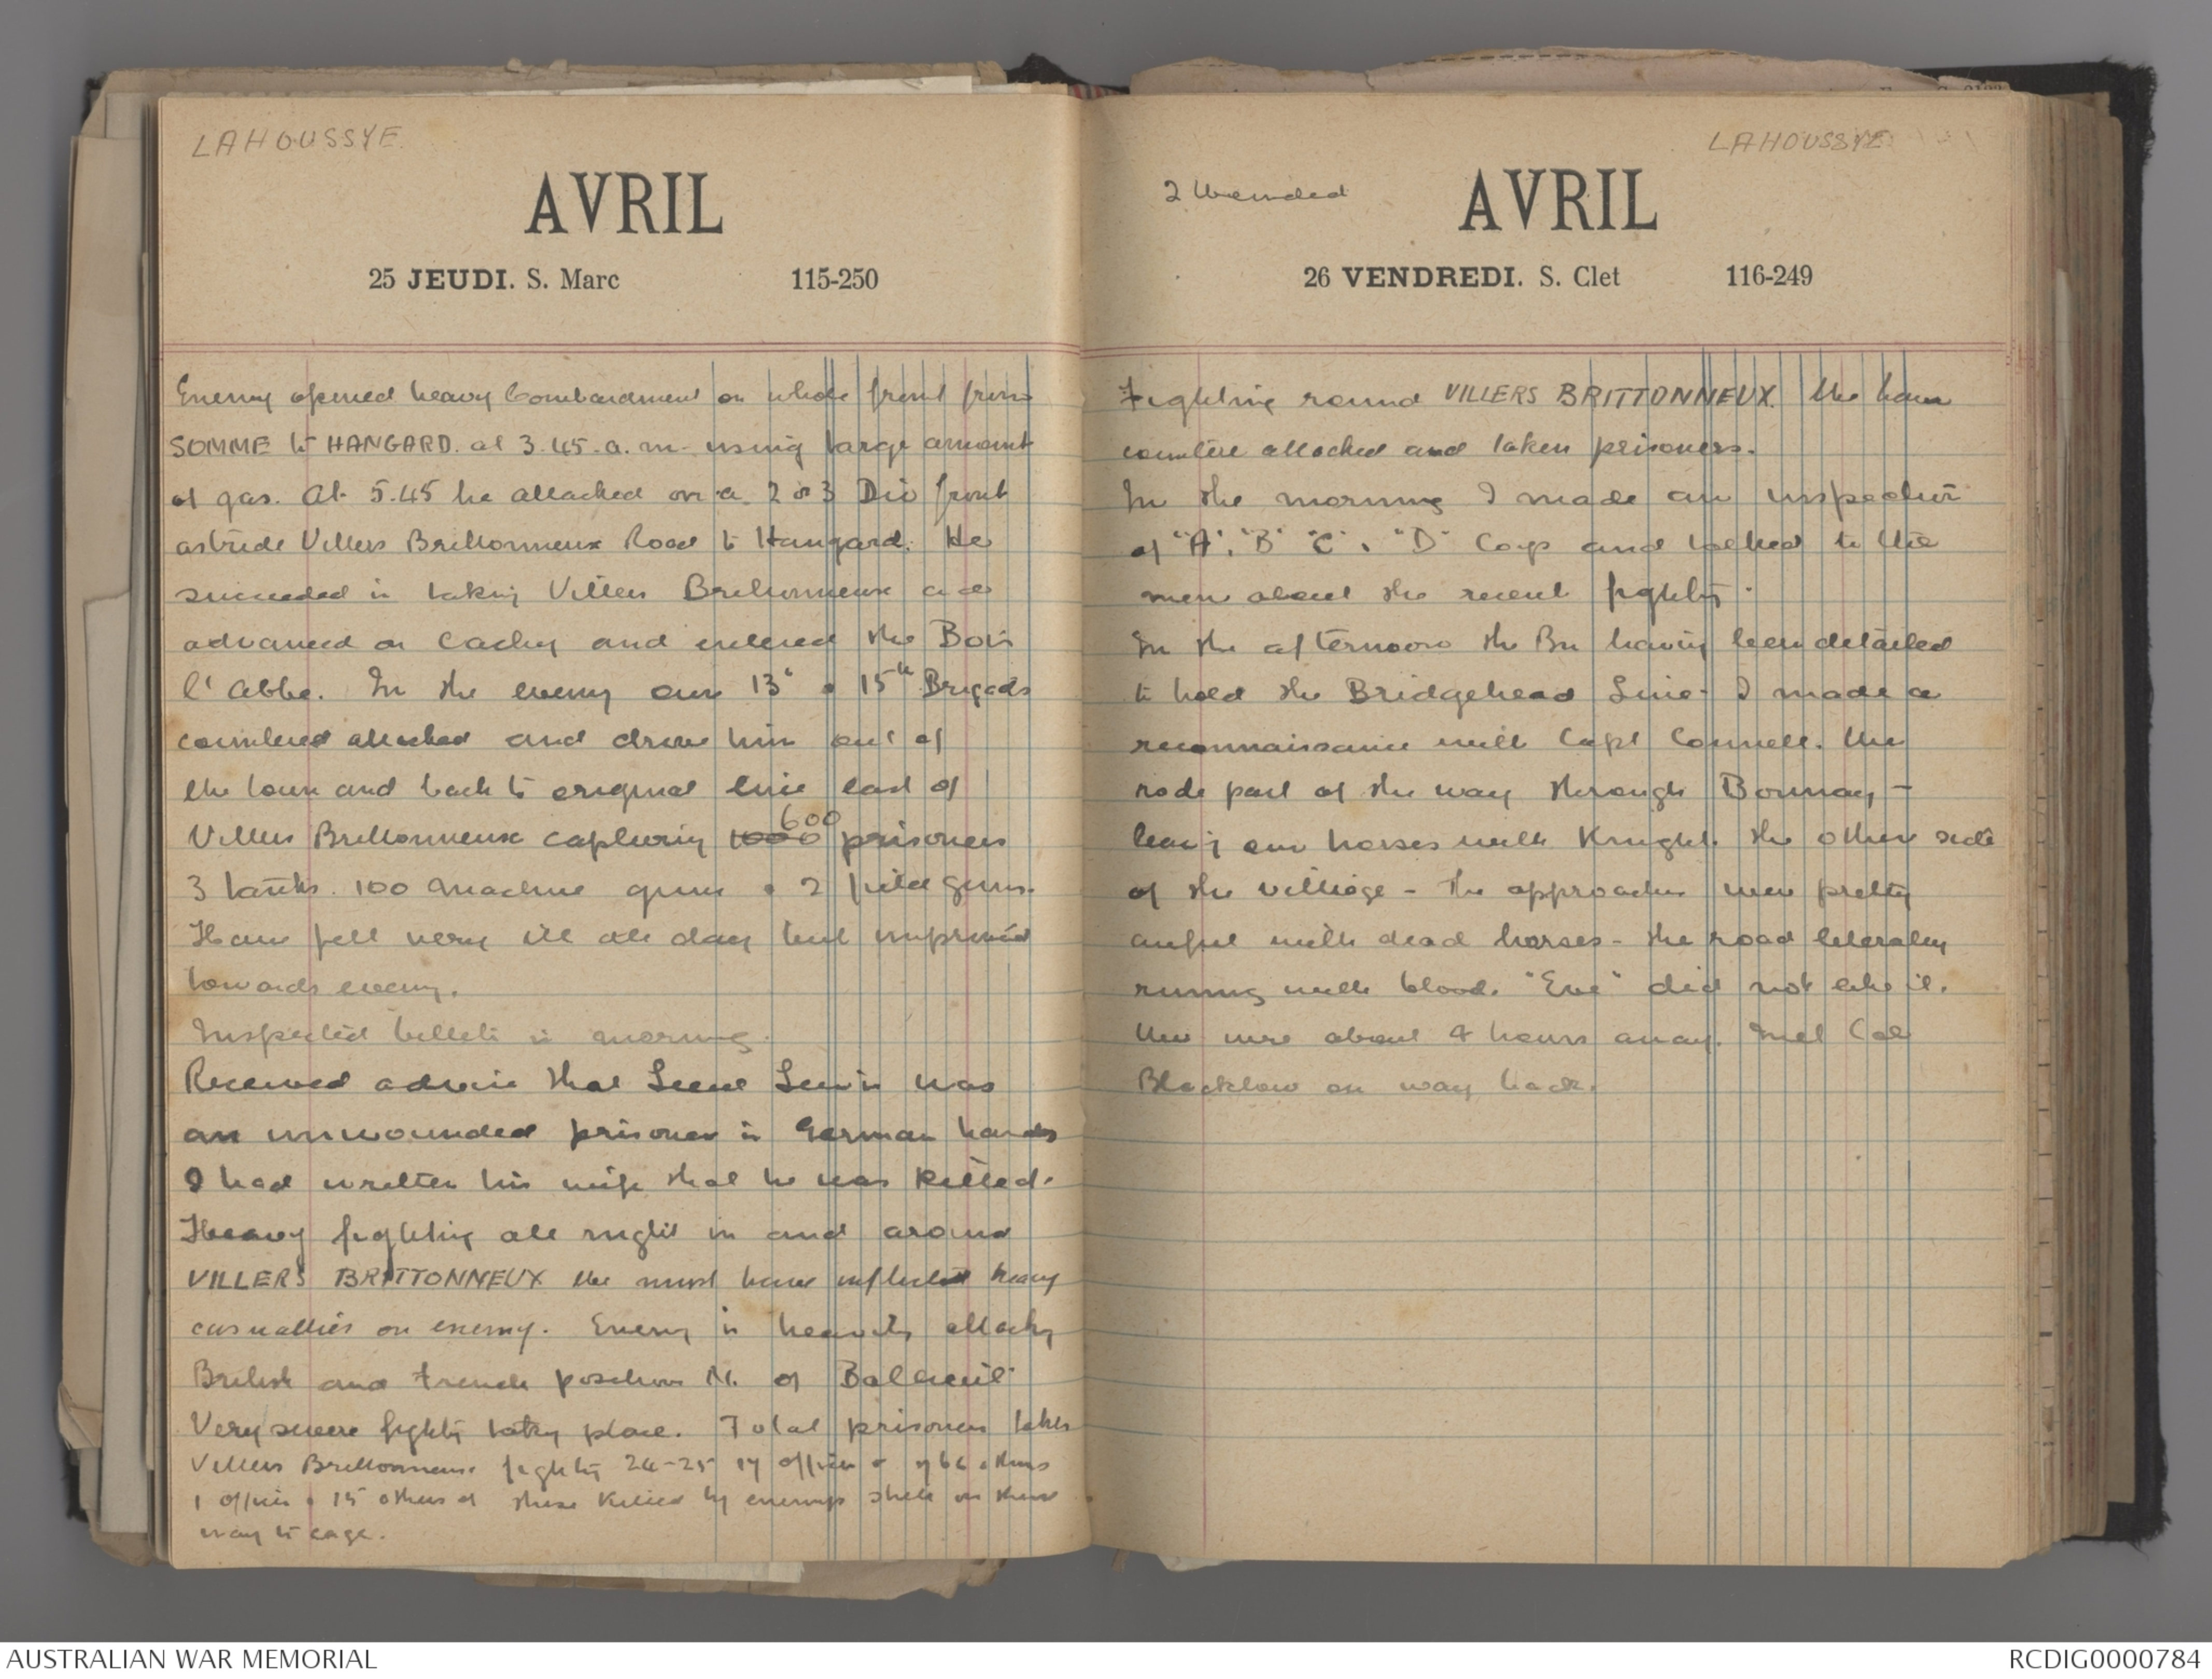 LAHOUSSYE.
AVRIL
25 JEUDI. S. Marc 115-250
Enemy opened heavy bombardment on whole front from
SOMME to HANGARD. at 3.45. a.m. using large amount
of gas. At 5.45 he attacked on a 2 or 3 Div front
astride Villers Brittonneux Road to Hangard. He
succeeded in taking Villers Brittonneux and
advanced on Cachy and entered the Bois
l'Abbe. In the evening our 13th & 15th Brigads
countered attacked and drove him out of
the town and back to original line east of
Villers Brittonneux capturing 1000 600 prisoners
3 tanks. 100 machine guns & 2 field guns.
Have felt very ill all day but improved
towards evening.
Inspected billets in morning.
Received advice that Lieut Lewin was
an unwounded prisoner in German hands
I had written his wife that he was killed.
Heavy fighting all night in and around
VILLERS BRITTONNEUX We must have inflicted heavy
casualties on enemy. Enemy is heavily attacking
British and French positions N. of Balleuil
Very severe fighting taking place. Total prisoners taken
Villers Brittonneux fighting 24-25 17 officers & 766 others
1 officer & 15 others of these killed by enemys shell on their
way to cage.
LAHOUSSYE
2 Wounded
AVRIL
26 VENDREDI. S. Clet 116-249
Fighting round VILLERS BRITTONNEUX. We have
counter attacked and taken prisoners.
In the morning I made an inspection
of "A", "B" "C", "D" Coys and talked to the
men about the recent fighting.
In the afternoon the Bn having been detailed
to hold the Bridgehead Line - I made a
reconnaissance with Capt Connell. We
rode part of the way through Bonnay -
leaving our horses with Knight the other side
of the village - The approaches were pretty
awful with dead horses - the road literally
running with blood. "Eve" did not like it.
We were about 4 hours away. Met Col
Blacklow on way back.
AUSTRALIAN WAR MEMORIAL
RCDIG0000784